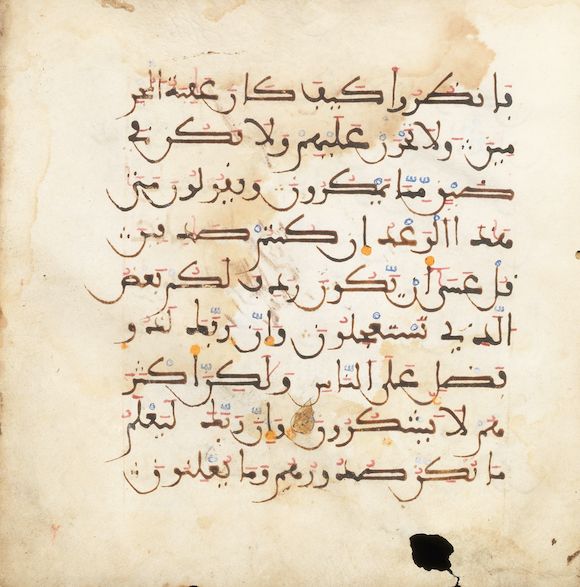 فانظروا كيف كان عقبة المجر
مين ولا تحزن عليهم ولا تكن في
ضيق مما يمكرون ويقولون متى
هذا الوعد ان كنتم صدقين
قل عسى ان يكون ردف لكم بعض
الذي تستعجلون وان ربك لذو
فضل على الناس ولكن اكثر
هم لا يشكرون وان ربك ليعلم
ما تكن صدورهم وما يعلنون